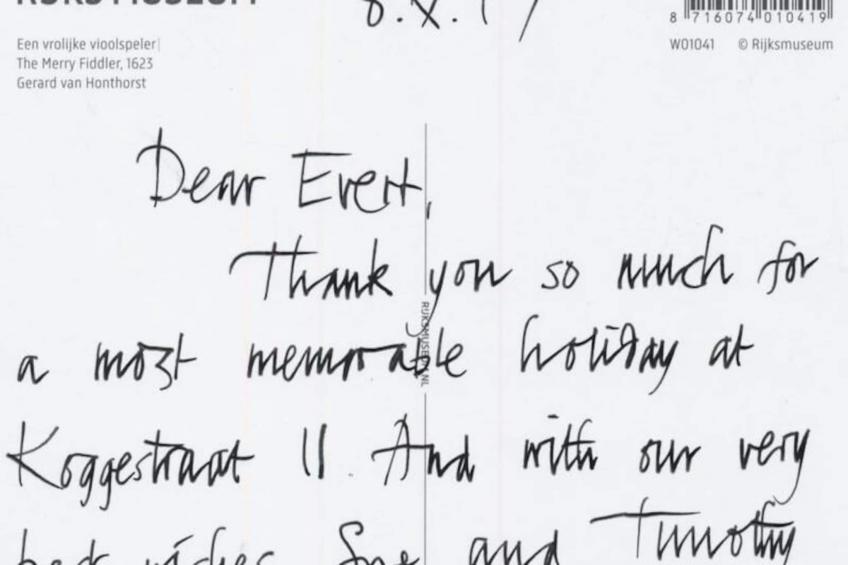 RIJKSMUSEUM
8 716074 010419
Een vrolijke vioolspeler
The Merry Fiddler, 1623
Gerard van Honthorst
W01041 © Rijksmuseum
Dear Evert,
Thank you so much for
a most memorable holiday at
Koggestraat 11. And with our very
best wishes and Timothy